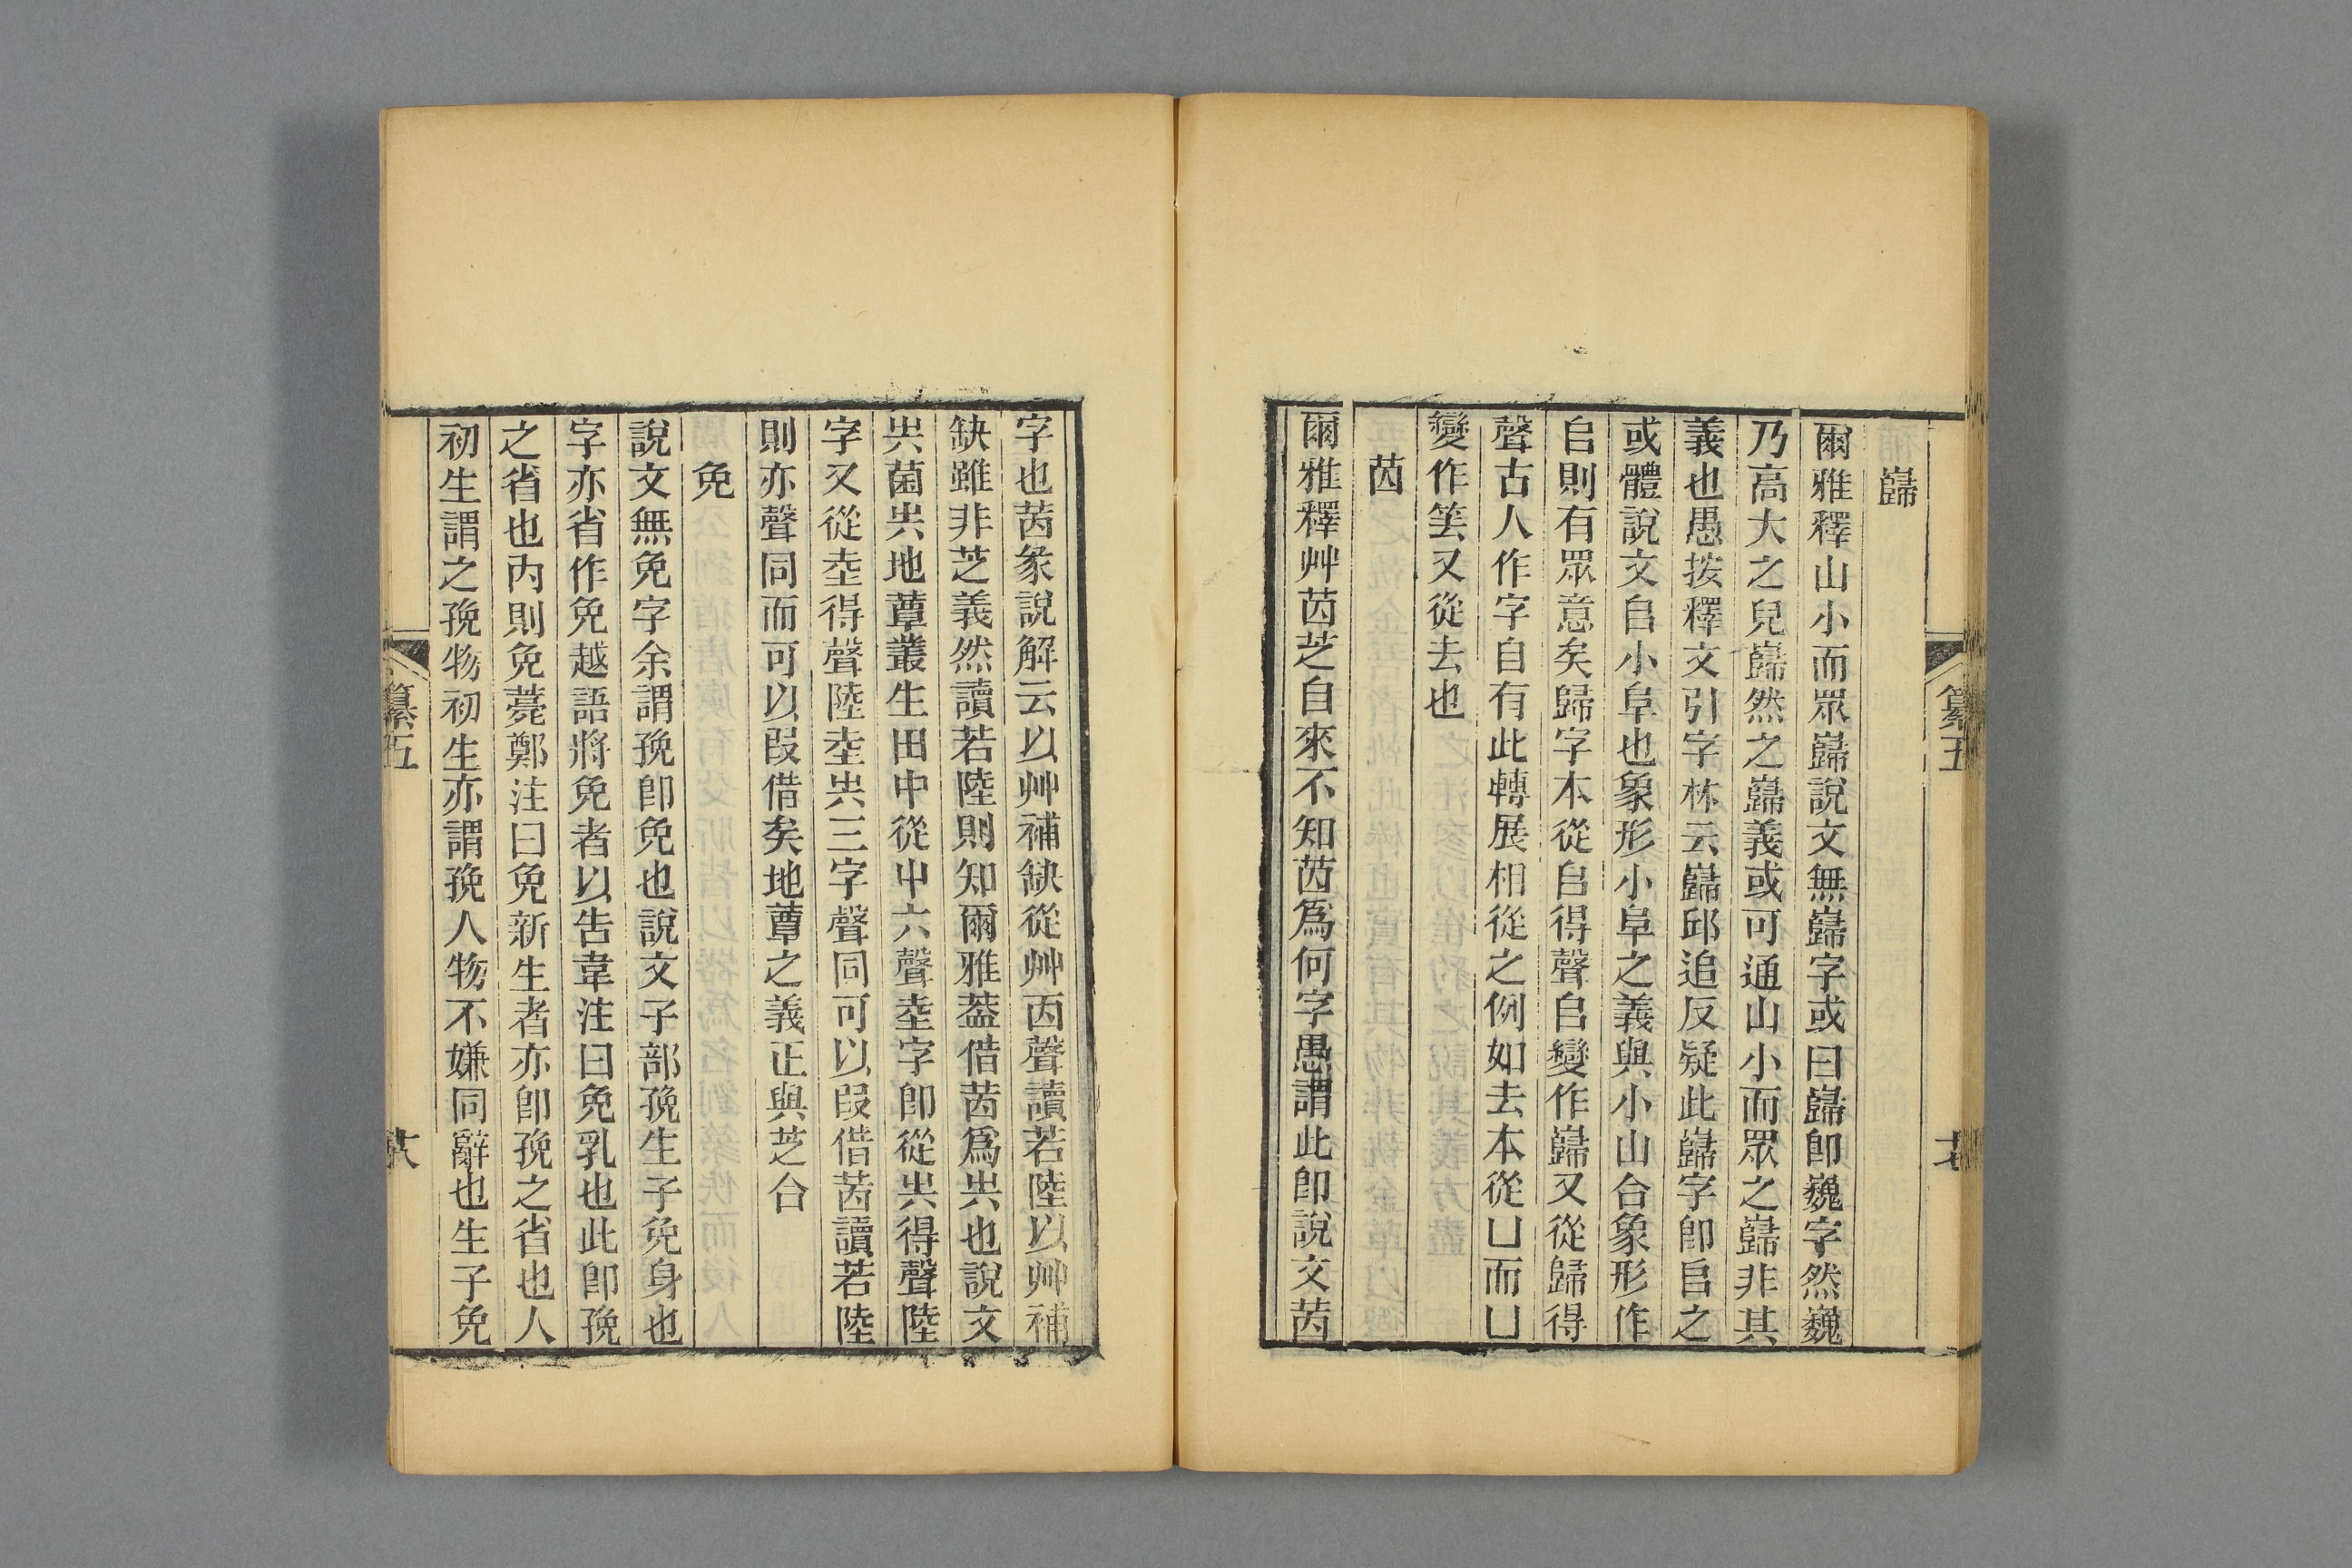 巋
爾雅釋山小而眾巋說文無巋字或曰巋卽巍字然巍
乃高大之皃巋然之巋義或可通山小而眾之巋非其
義也愚按釋文引字林云巋邱追反疑此巋字卽𠂤之
或體說文𠂤小阜也象形小阜之義與小山合象形作
𠂤則有眾意矣歸字本從𠂤得聲𠂤變作巋又從歸得
聲古人作字自有此轉展相從之例如去本從凵而凵
變作䇲又從去也
茵
爾雅釋艸茵芝自來不知茵爲何字愚謂此卽說文茵
字也茵彖說解云以艸補缺從艸㐁聲讀若陸以艸補
缺雖非芝義然讀若陸則知爾雅葢借茵爲圥也說文
圥菌圥地蕈叢生田中從屮六聲坴字卽從圥得聲陸
字又從坴得聲陸坴圥三字聲同可以叚借茵讀若陸
則亦聲同而可以叚借矣地蕈之義正與芝合
免
說文無免字余謂㝃卽免也說文子部㝃生子免身也
字亦省作免越語將免者以告韋注曰免乳也此卽㝃
之省也內則免薧鄭注曰免新生者亦卽㝃之省也人
初生謂之㝃物初生亦謂㝃人物不嫌同辭也生子免
纂五
纂五